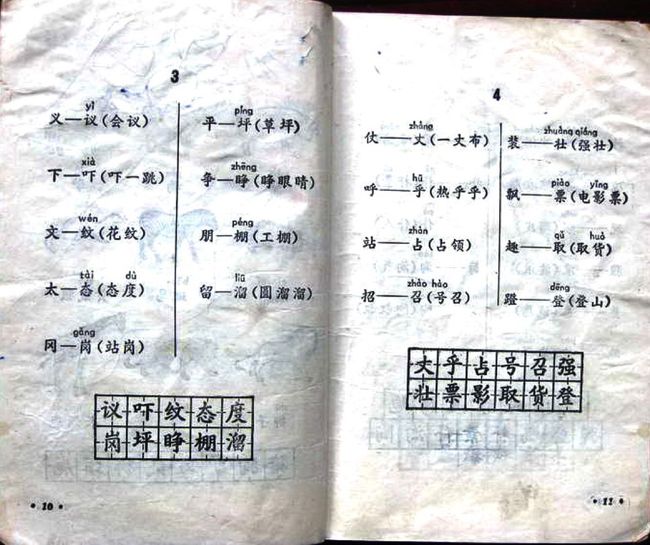 3
yì
义—议(会议)
xià
下—吓(吓一跳)
wén
文—纹(花纹)
tài dù
太—态(态度)
gǎng
冈—岗(站岗)
píng
平—坪(草坪)
zhēng
争—睁(睁眼睛)
péng
朋—棚(工棚)
liū
留—溜(圆溜溜)
议吓纹态度
岗坪睁棚溜
·10·
4
zhàng
仗——丈(一丈布)
hū
呼——乎(热乎乎)
zhàn
站——占(占领)
zhào hào
招——召(号召)
zhuàng qiáng
装——壮(强壮)
piào yǐng
飘——票(电影票)
qǔ huò
趣——取(取货)
dēng
蹬——登(登山)
丈乎占号召强
壮票影取货登
·11·